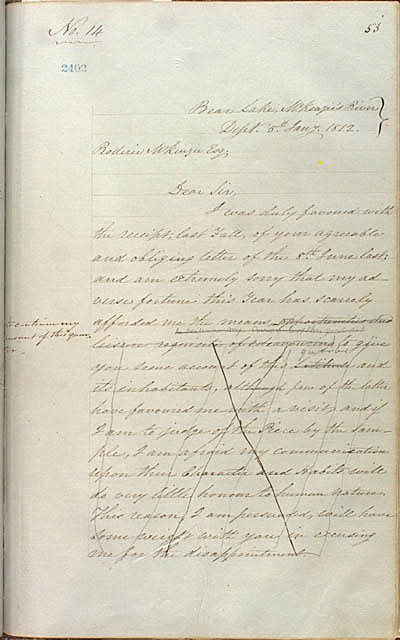 No. 14
53
2402
Bear Lake, McKenzie's River
Dept. 5th Jany. 1812.
Roderic McKenzie Esq;
Dear Sir,
I was duly favoured with
the receipt, last Fall, of your agreeable
and obliging letter of the 8th June last;
and am extremely sorry that my ad-
verse fortune this Year has scarcely
afforded me the means, opportunities and
leisure to give
of this
you some account of this and
its inhabitants, although few of the latter
have favoured me with a visit; and if
I am to judge of the Piece by the Sam-
ple, I am afraid my communication
upon their Character and Habits will
do very little honour to human nature.
This reason, I am persuaded, will have
some weight with you in excusing
me for the disappointment.